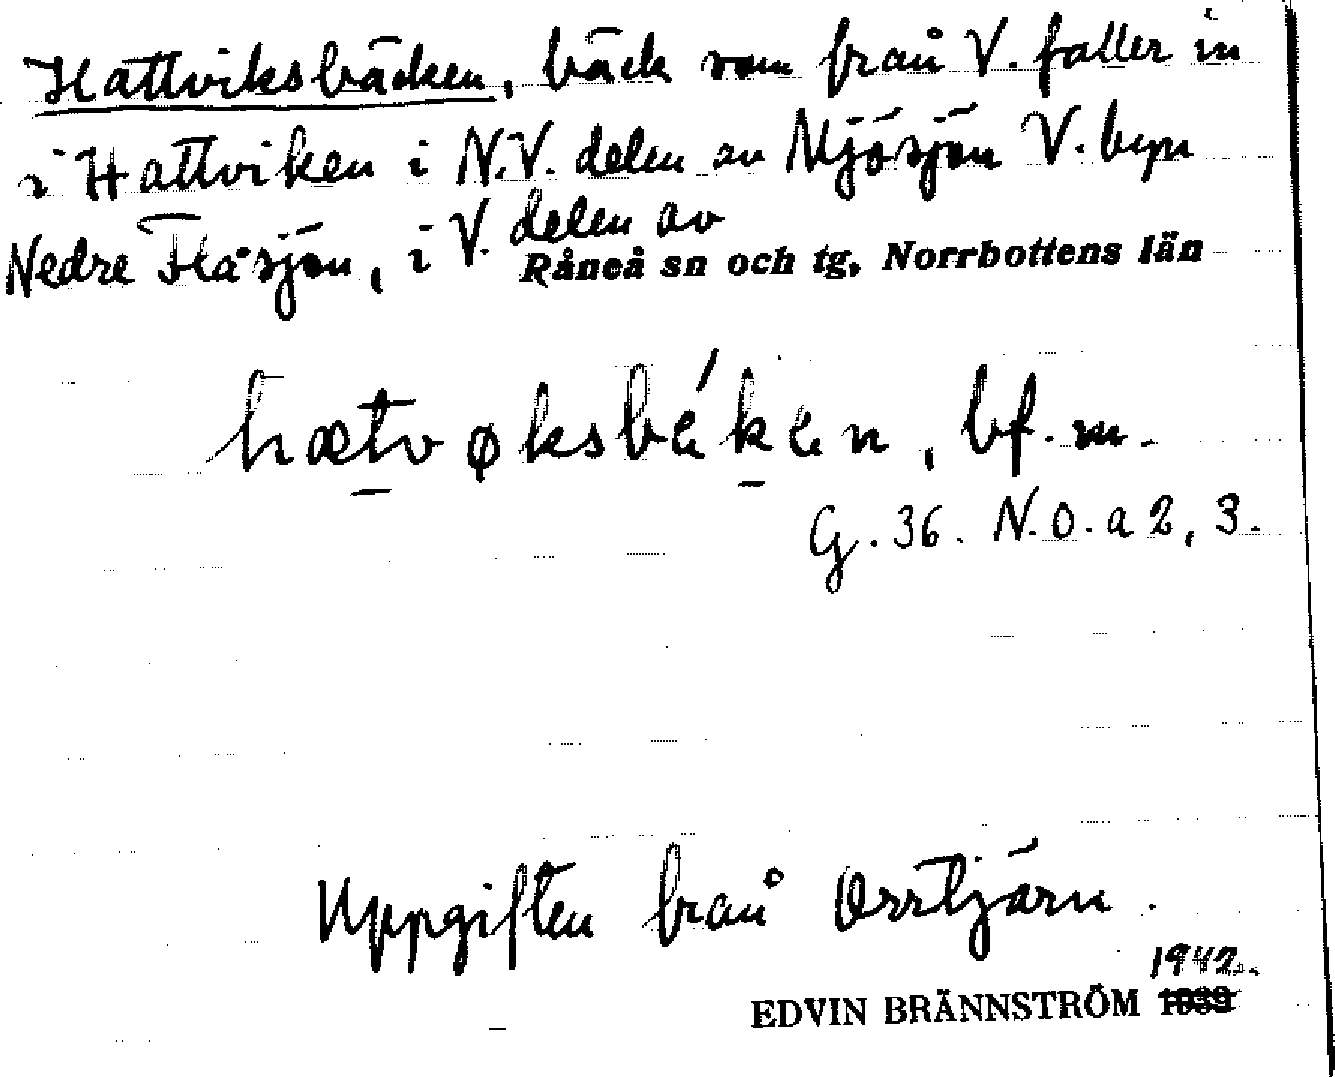 Hattviksbäcken, bäck som från V. faller in
i Hattviken i N.V. delen av Mjösjön V. byn
Nedre Flåsjön, i V. delen av
Råneå sn och tg, Norrbottens län
hætvøksbékɛn, bf. m.
G. 36. N.O. a 2, 3.
Uppgiften från Orrtjärn.
1942.
EDVIN BRÄNNSTRÖM 1939